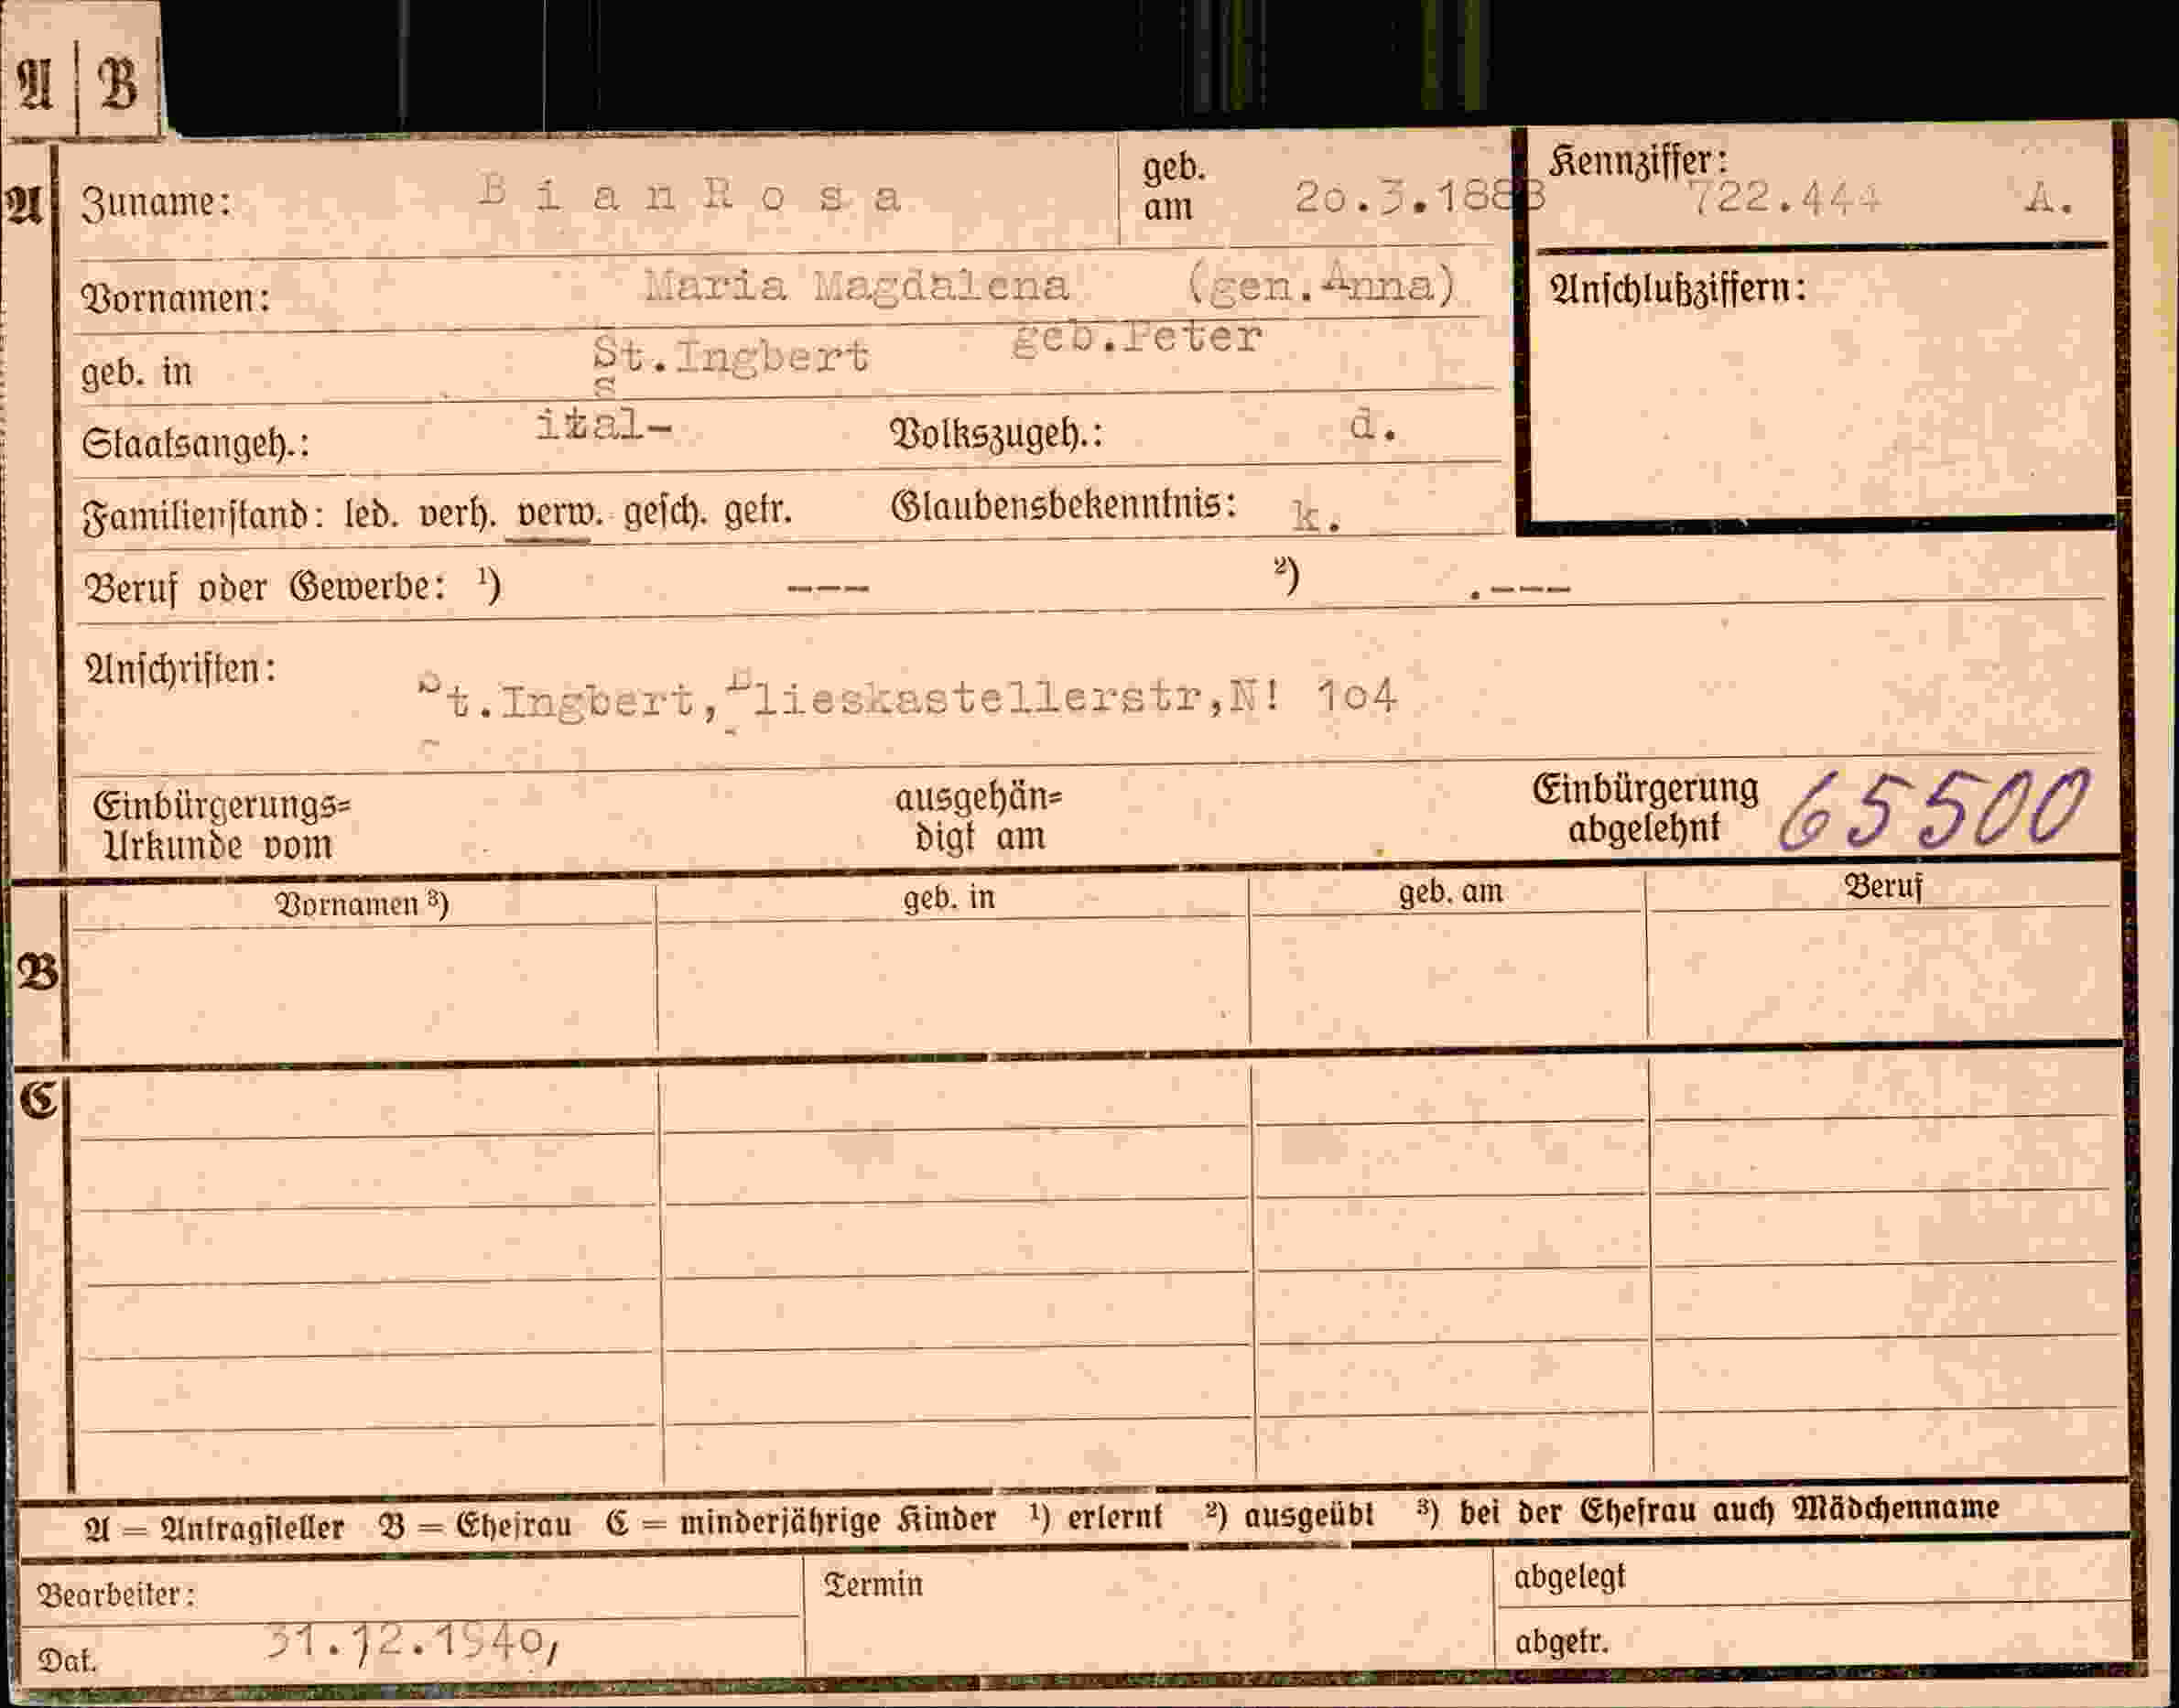 A | B
A Zuname: BianRosa geb. am 20.3.1883 Kennziffer: 722.444 A.
Vornamen: Maria Magdalena (gen.Anna) Anschlußziffern:
geb.Peter
geb. in St.Ingbert
Staatsangeh.: ital- Volkszugeh.: d.
Familienstand: led. verh. verw. gesch. getr. Glaubensbekenntnis: k.
Beruf oder Gewerbe: ¹) --- ²) .---
Anschriften: St.Ingbert,Blieskastellerstr,N! 1o4
Einbürgerungs= ausgehän= Einbürgerung 65500
Urkunde vom digt am abgelehnt
Vornamen ³) geb. in geb. am Beruf
B
C
A = Antragsteller B = Ehefrau C = minderjährige Kinder ¹) erlernt ²) ausgeübt ³) bei der Ehefrau auch Mädchenname
Bearbeiter: Termin abgelegt
Dat. 31.12.1940, abgetr.